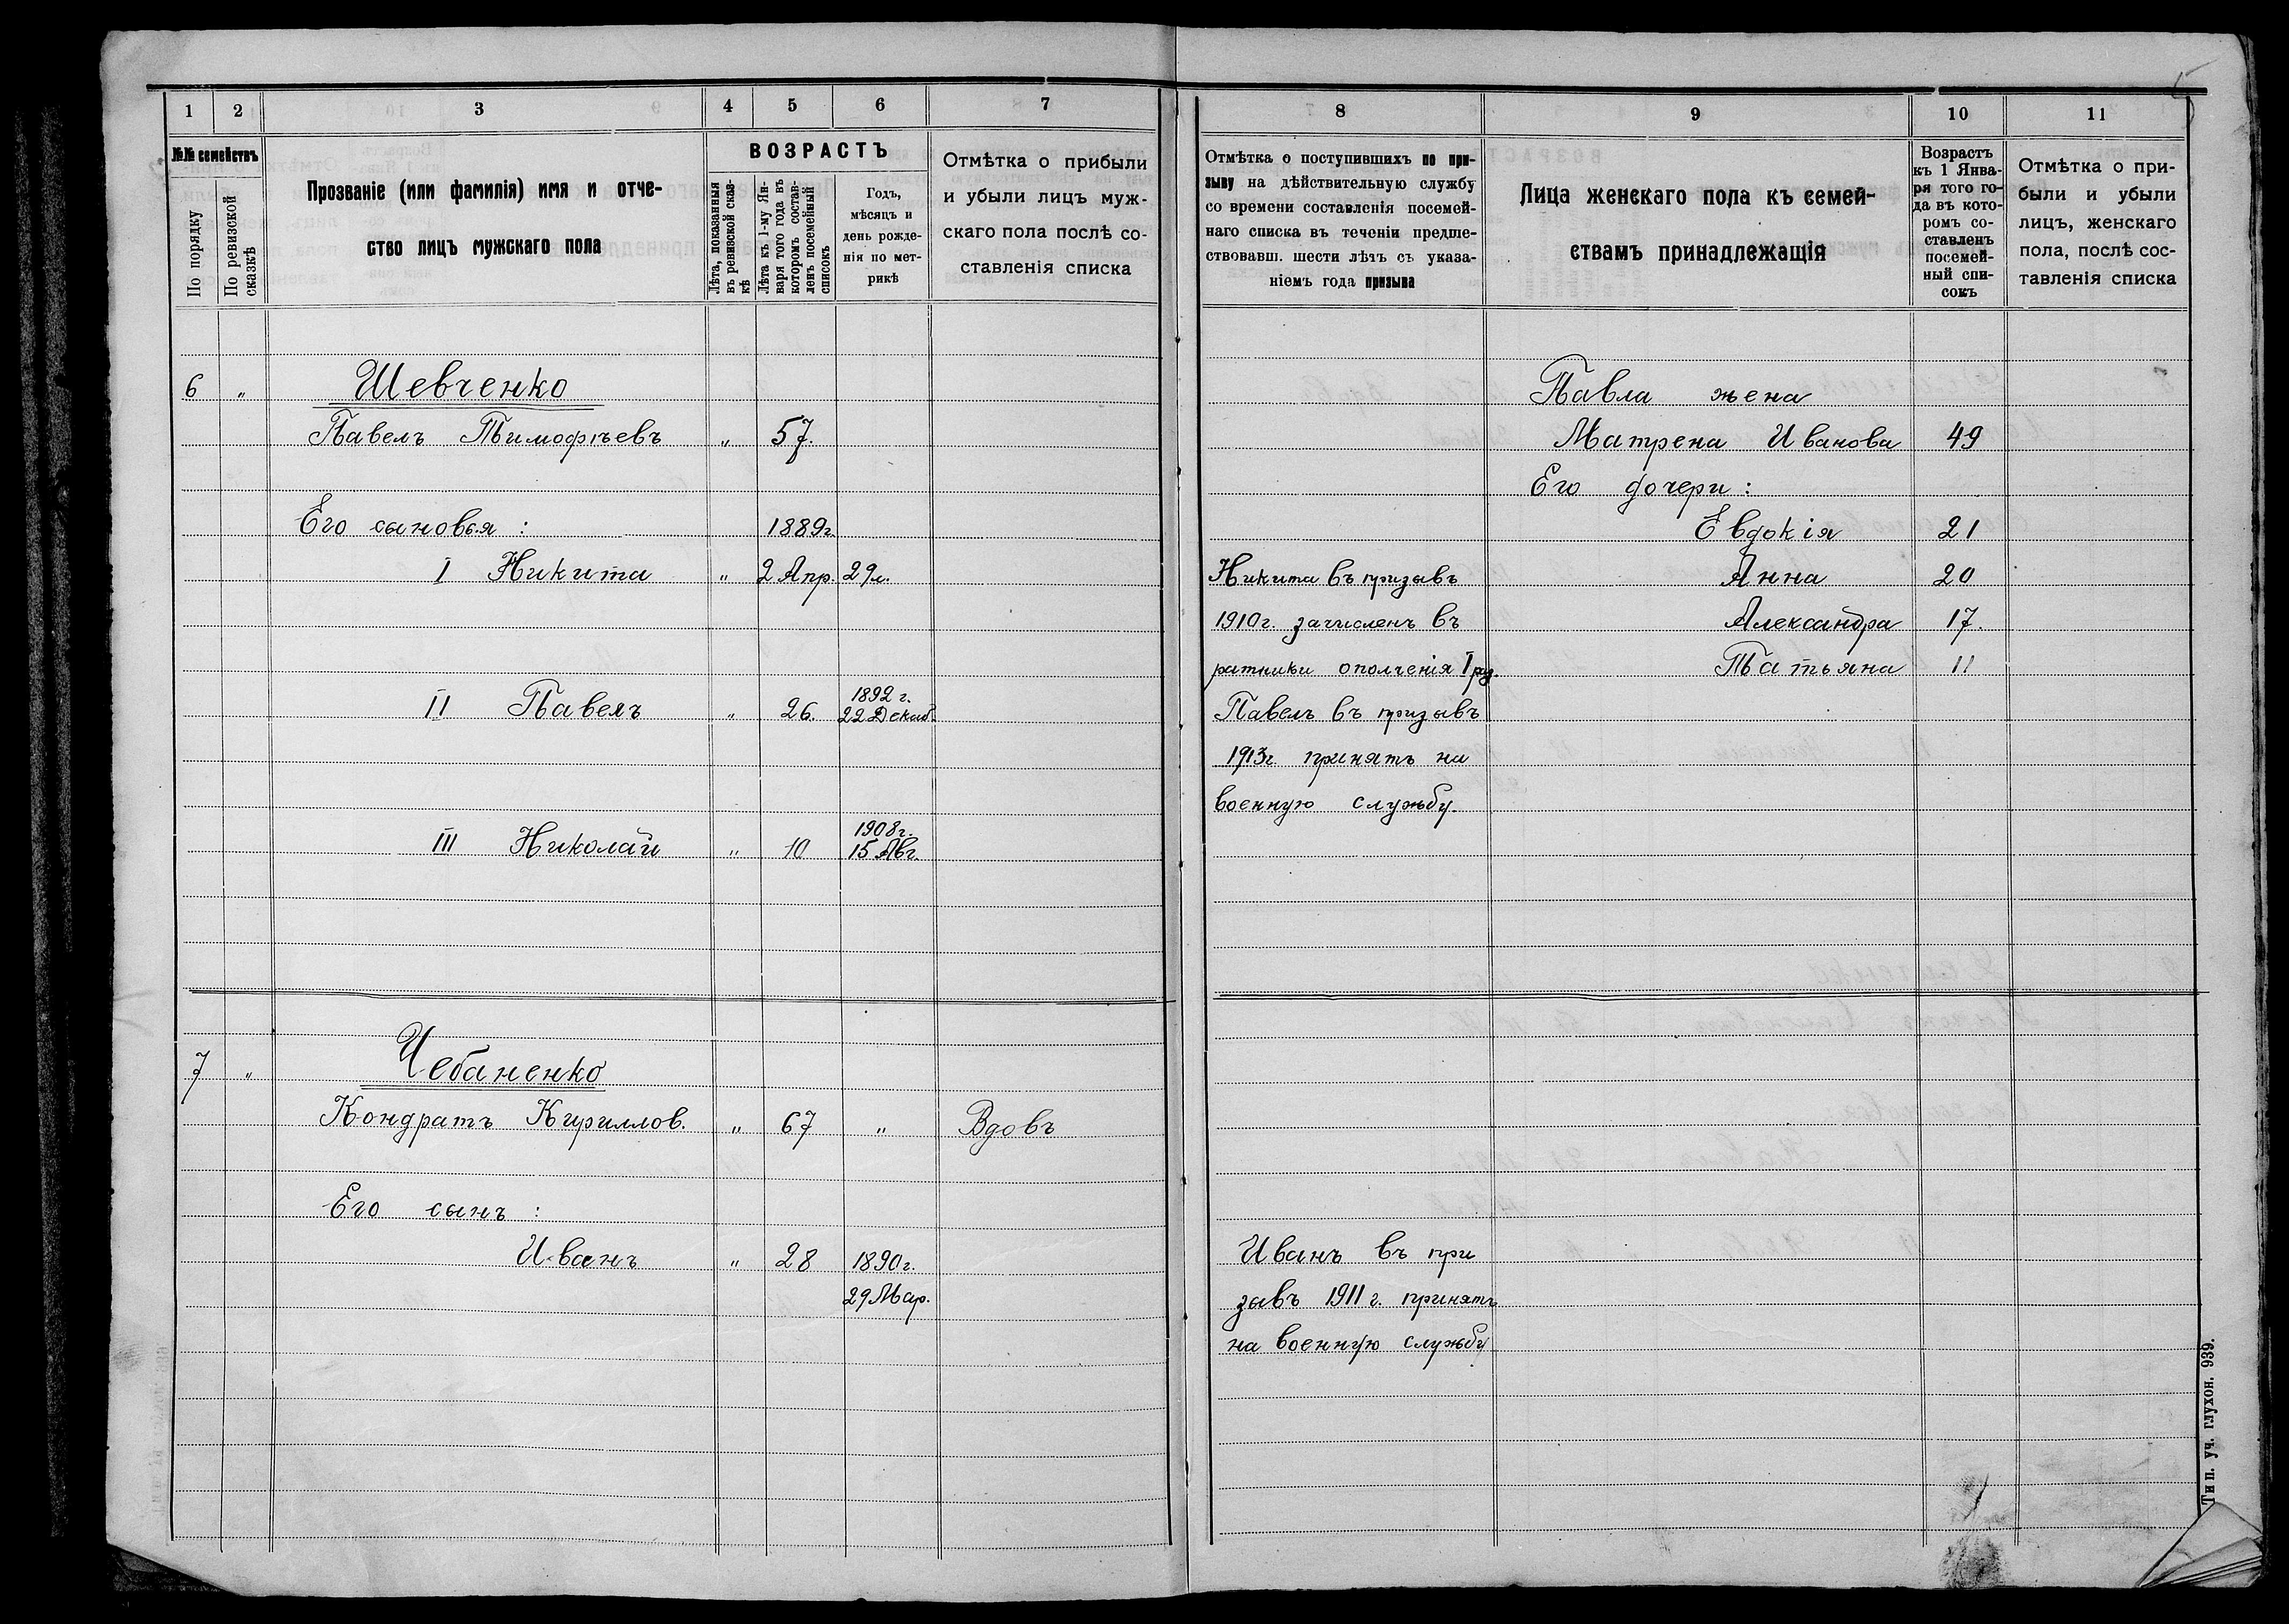 1 2 3 4 5 6 7
№№ семействъ
По порядку
По ревизской сказкѣ
Прозваніе (или фамилія) имя и отче-
ство лицъ мужскаго пола
ВОЗРАСТЪ
Лѣта, показанныя
въ ревизской сказ-
кѣ
Лѣта къ 1-му Ян-
варя того года въ
которомъ состав-
ленъ посемейный
списокъ
Годъ,
мѣсяцъ и
день рожде-
нія по мет-
рикѣ
Отмѣтка о прибыли
и убыли лицъ муж-
скаго пола послѣ со-
ставленія списка
6 „ Шевченко
Павелъ Тимофѣевъ „ 57.
Его сыновья : 1889г.
I Никита „ 2 Апр. 29л.
II Павелъ „ 26. 1892 г.
22 Декаб.
III Николай „ 10 1908г.
15 Авг.
7 „ Чебаненко
Кондратъ Кириллов. „ 67 „ Вдовъ
Его сынъ :
Иванъ „ 28 1890г.
29 Мар.
8 9 10 11
Отмѣтка о поступившихъ по при-
зыву на дѣйствительную службу
со времени составленія посемей-
наго списка въ теченіи предше-
ствовавш. шести лѣтъ съ указа-
ніемъ года призыва
Лица женскаго пола къ семей-
ствамъ принадлежащія
Возрастъ
къ 1 Янва-
ря того го-
да въ кото-
ромъ со-
ставленъ
посемей-
ный спи-
сокъ
Отмѣтка о при-
были и убыли
лицъ, женскаго
пола, послѣ сос-
тавленія списка
Павла жена
Матрена Иванова 49
Его дочери :
Евдокія 21
Никита въ призывъ Анна 20
1910г. зачисленъ въ Александра 17.
ратники ополченія I раз. Татьяна 11
Павелъ въ призывъ
1913г. принятъ на
военную службу.
Иванъ въ при
зывъ 1911 г. принятъ
на военную службу
Тип. уч. глухон. 939.